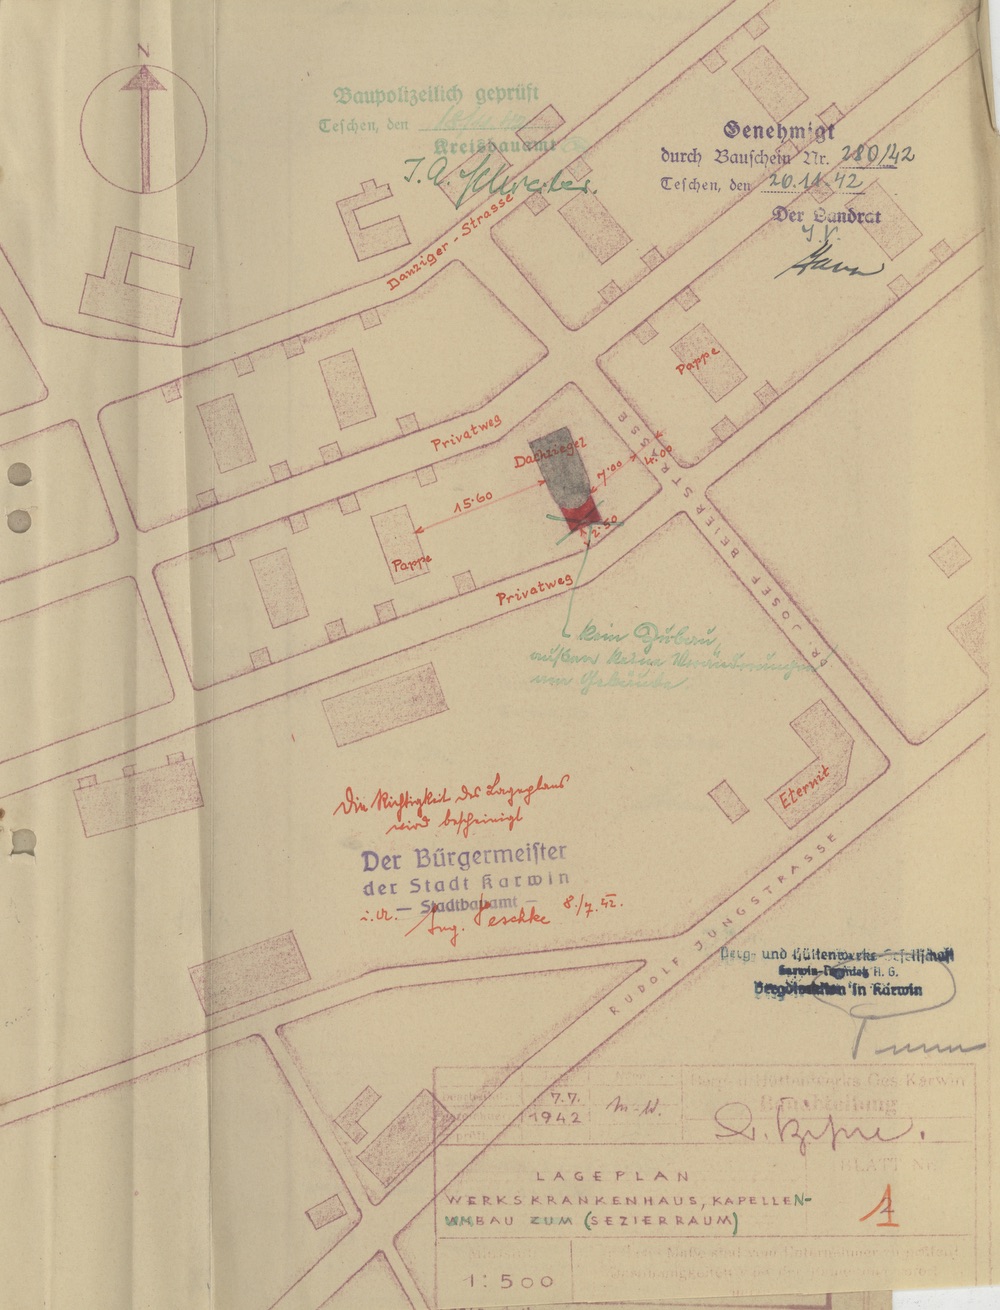 N
Baupolizeilich geprüft
Teschen, den
Kreisbauamt
J. A. Schreter.
Genehmigt
durch Bauschein Nr. 280/42
Teschen, den 20.11.42
Der Landrat
J. V.
Danziger-Strasse
Pappe
Privatweg
Dachziegel
7·00
4·00
15·60
Pappe
2·50
Privatweg
DR. JOSEF BEIERSTRASSE
kein Zubau,
außen keine Veränderungen
am Gebäude.
Eternit
Die Richtigkeit des Lageplans
wird bescheinigt
Der Bürgermeister
der Stadt Karwin
— Stadtbauamt —
i. A. Ing. Jeschke 8./7. 42.
RUDOLF JUNGSTRASSE
Berg- und Hüttenwerks-Gesellschaft
Karwin-Trzynietz A. G.
Bergdirektion in Karwin
Berg- u. Hüttenwerks Ges Karwin
Bauabteilung
7.7.
1942
M-W.
BLATT Nr.
1
LAGEPLAN
WERKSKRANKENHAUS, KAPELLEN-
UMBAU ZUM (SEZIERRAUM)
Maßstab
1:500